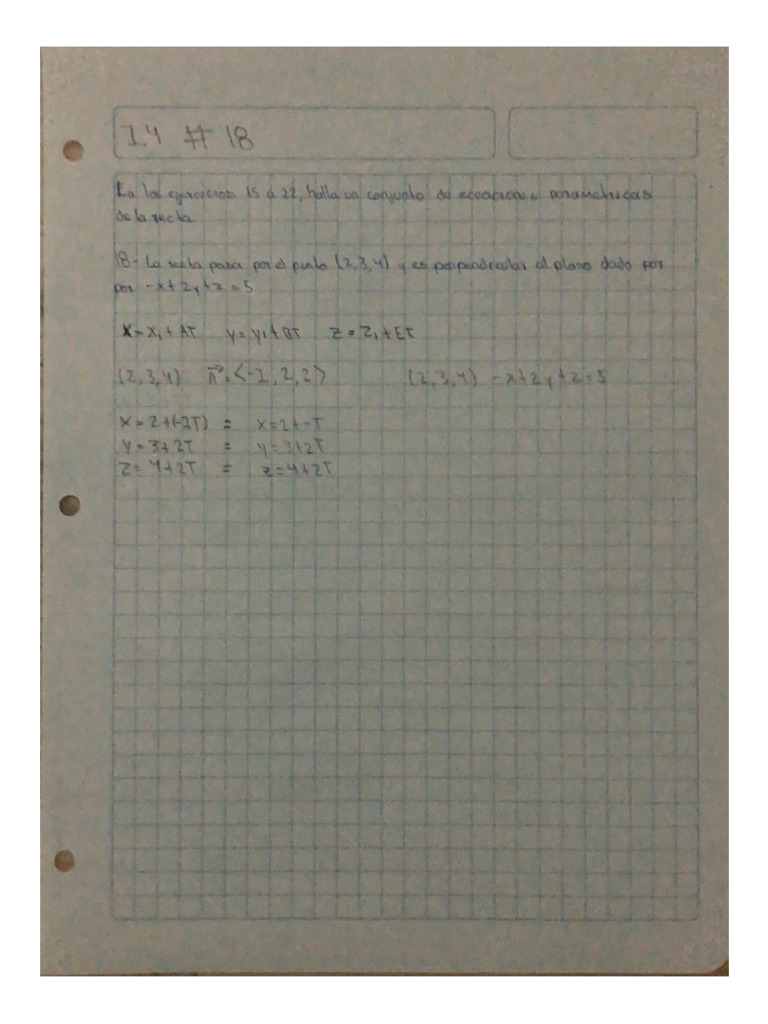 1.4 # 18
En los ejercicios 15 a 22, halla un conjunto de ecuaciones parametricas
de la recta
18- La recta pasa por el punto (2,3,4) y es perpendicular al plano dado por
por -x+2y+z=5
X=X₁+AT y=y₁+BT Z=Z₁+ET
(2,3,4) n⃗=<-1,2,2> (2,3,4) -x+2y+z=5
x=2+(-1T) = x=2+-T
y=3+2T = y=3+2T
Z=4+2T = z=4+2T